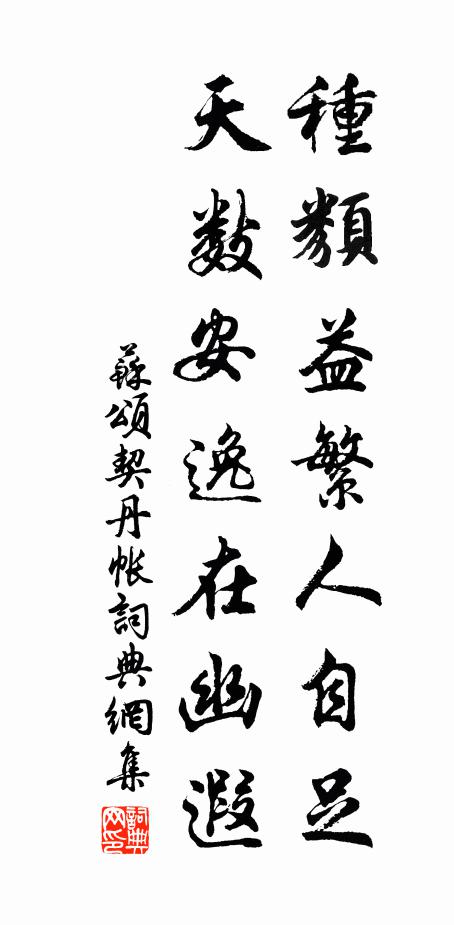 種類益繁人自足
天數安逸在幽遐
蘇頌契丹帳詞典網集
詞典网印